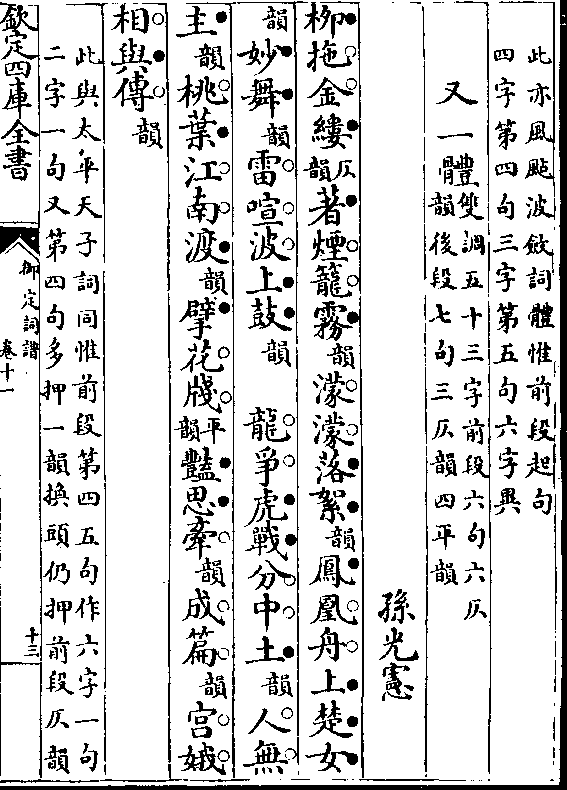 此亦風颭波斂詞體惟前段起句
四字第四句三字第五句六字異
又一體雙調五十三字前段六句六仄
韻後段七句三仄韻四平韻
孫光憲
柳拖金縷仄韻著煙籠霧韻濛濛落絮韻鳳凰舟上楚女
韻妙舞韻雷喧波上鼓韻 龍爭虎戰分中土韻人無
主韻桃葉江南渡韻擘花牋平韻豔思牽韻成篇韻宮娥
相與傳韻
此與太平天子詞同惟前段第四五句作六字一句
二字一句又第四句多押一韻換頭仍押前段仄韻
欽定四庫全書
御定詞譜
卷十一
十三